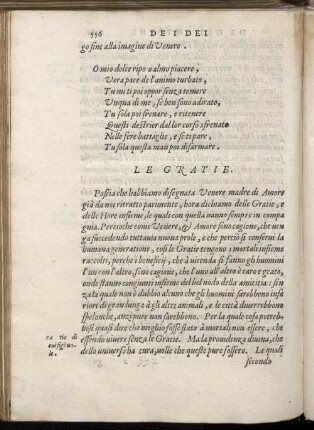 556 DEI DEI
go fine alla imagine di Venere.
O mio dolce ripo o almo piacere,
Vera pace de l'animo turbato,
Tu mi ti poi oppor senza temere
Unqua di me, se ben sono adirato,
Tu sola poi frenare, e ritenere
Questi destrier dal lor corso sfrenato
Nelle fere battaglie, e se ti pare,
Tu sola questa man poi disarmare.
LE GRATIE.
Poscia che habbiamo disegnata Venere madre di Amore
già da noi ritratto parimente, hora dichiamo delle Gratie, e
delle Hore insieme, le quali con quella uanno sempre in compa
gnia. Percioche come Venere, & Amore sono cagione, che uen
ga succedendo tuttauia nuoua prole, e che perciò si conserui la
humana generatione, così le Gratie tengono i mortali insieme
raccolti, perche i beneficij, che à uicenda si fanno gli huomini
l'un con l'altro, sono cagione, che l'uno all'altro è caro e grato,
onde stanno congiunti insieme del bel nodo della amicitia: sen
za la quale non è dubbio alcuno che gli huomini sarebbono infe
riori di gran lunga à gli altri animali, e le città diuerrebbono
spelonche, anzi pure non sarebbono. Per la qual cosa potreb
besi quasi dire che meglio fosse stato à mortali non essere, che
essendo uiuere senza le Gratie. Ma la prouidenza diuina, che
dello uniuerso ha cura, uolle che queste pure fossero. Le quali
secondo